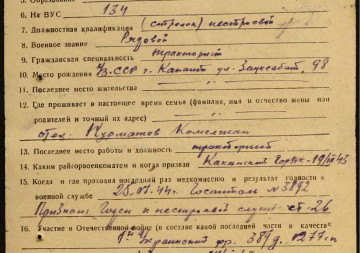 6. На ВУС 134
7. Должностная квалификация (стрелок) нестроевой
8. Военное звание Рядовой
9. Гражданская специальность тракторист
10. Место рождения УзССР г. Коканд ул. 98
11. Последнее место жительства
12. Где проживает в настоящее время семья (фамилия, имя и отчество жены или
родителей и точный на адрес)
отец
13. Последнее место работы и должность тракторист
14. Каким райгорвоенкоматом и когда призван
15. Когда и где проходил последний раз медкомиссию и результат о годности к
военной службе 25.07.44г. Госпиталь № 3892
Признан годен к нестроевой службе ст. 26
16. Участие в Отечественной войне (в составе какой последней части и в качеств
Украинский фр. 389 д. 1277 сп